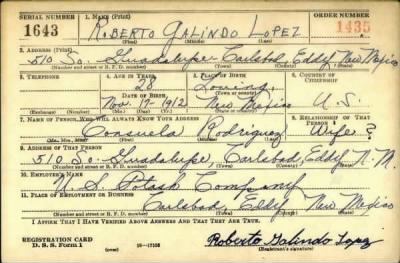 SERIAL NUMBER 1. NAME (Print) ORDER NUMBER
1643 ROBERTO GALINDO LOPEZ 1435
2. ADDRESS (Print)
510 So. Guadalupe Carlsbad, Eddy New Mexico
(Number and street or R. F. D. number) (Town) (County) (State)
3. TELEPHONE 4. AGE IN YEARS 5. PLACE OF BIRTH 6. COUNTRY OF CITIZENSHIP
28
(Town or county)
DATE OF BIRTH
Nov. 17 1912 New Mexico U.S.
(Exchange) (Number) (Mo.) (Day) (Yr.) (State or country)
7. NAME OF PERSON WHO WILL ALWAYS KNOW YOUR ADDRESS 8. RELATIONSHIP OF THAT PERSON
Consuela Rodriguez Wife ?
(Mr., Mrs., Miss) (First) (Middle) (Last)
9. ADDRESS OF THAT PERSON
510 So. Guadalupe, Carlsbad, Eddy N. M.
(Number and street or R. F. D. number) (Town) (County) (State)
10. EMPLOYER'S NAME
U. S. Potash Company
11. PLACE OF EMPLOYMENT OR BUSINESS
Carlsbad, Eddy New Mexico
(Number and street or R. F. D. number) (Town) (County) (State)
I AFFIRM THAT I HAVE VERIFIED ABOVE ANSWERS AND THAT THEY ARE TRUE.
REGISTRATION CARD
D. S. S. Form 1 (over) 16—17105 Roberto Galindo Lopez
(Registrant's signature)